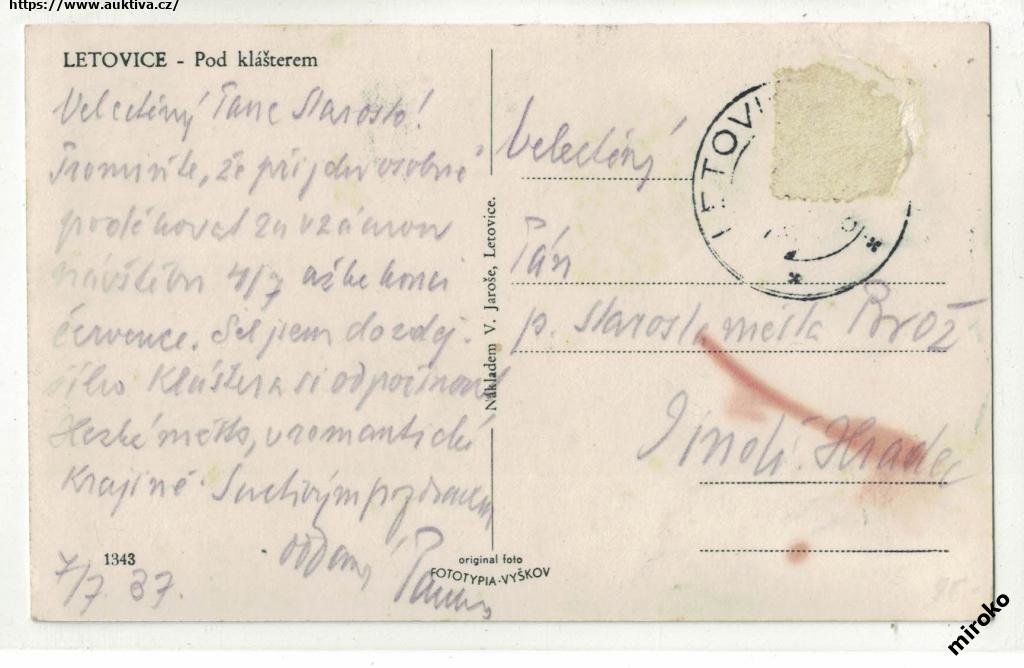 https://www.auktiva.cz/
LETOVICE - Pod klášterem
Velectěný Pane Starosto!
Promiňte, že přijdu osobně
poděkovat za vzácnou
návštěvu 4/7 až ke konci
července. Šel jsem do zdej-
šího Kláštera si odpočinout
Hezké město, v romantické
Krajině. Srdečným pozdravem
oddaný
7/7 37.
1343
Nákladem V. Jaroše, Letovice.
original foto
FOTOTYPIA-VYŠKOV
LETOVI
Velectěný
Pán
p. starosta města Brož
Jindř. Hradec
miroko